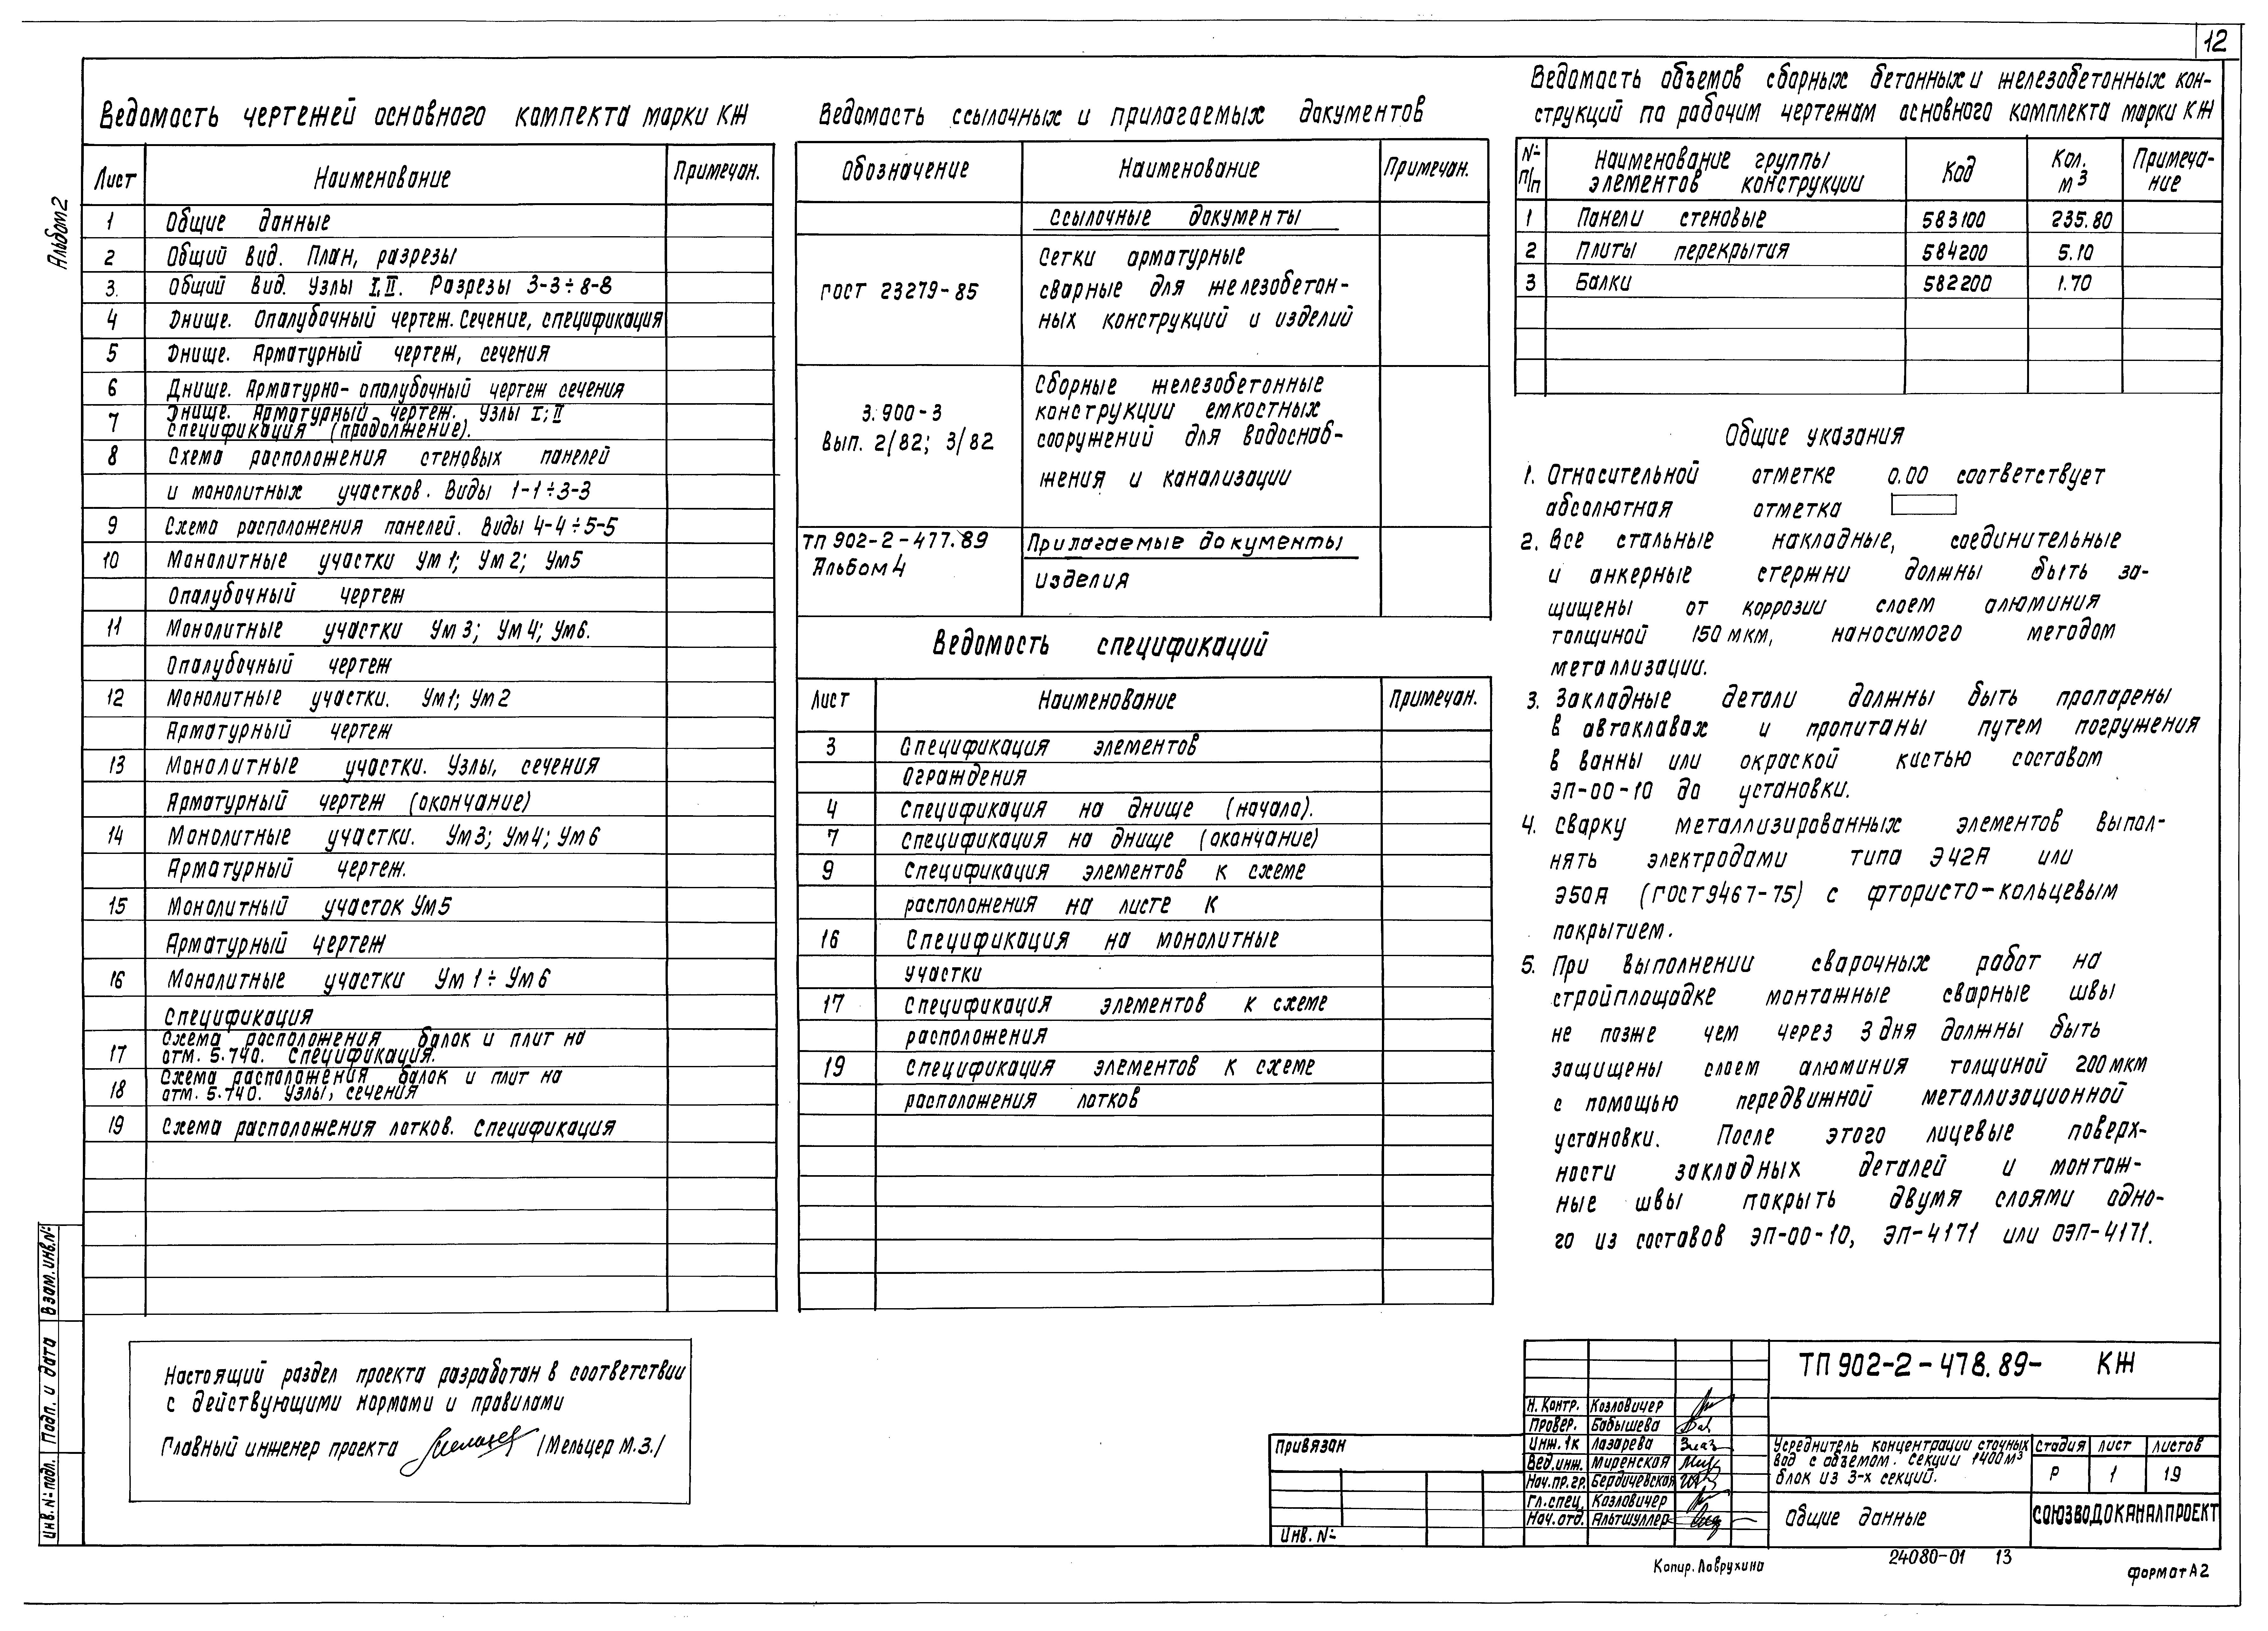 12
Альбом 2
Ведомость чертежей основного компекта марки КЖ
Лист Наименование Примечан.
1 Общие данные
2 Общий вид. План, разрезы
3. Общий вид. Узлы I, II. Разрезы 3-3÷8-8
4 Днище. Опалубочный чертеж. Сечение, спецификация
5 Днище. Арматурный чертеж, сечения
6 Днище. Арматурно-опалубочный чертеж сечения
7 Днище. Арматурный чертеж. Узлы I; II
спецификация (продолжение).
8 Схема расположения стеновых панелей
и монолитных участков. Виды 1-1÷3-3
9 Схема расположения панелей. Виды 4-4÷5-5
10 Монолитные участки Ум 1; Ум 2; Ум5
Опалубочный чертеж
11 Монолитные участки Ум 3; Ум 4; Ум6.
Опалубочный чертеж
12 Монолитные участки. Ум1; Ум 2
Арматурный чертеж
13 Монолитные участки. Узлы, сечения
Арматурный чертеж (окончание)
14 Монолитные участки. Ум3; Ум4; Ум6
Арматурный чертеж.
15 Монолитный участок Ум5
Арматурный чертеж
16 Монолитные участки Ум 1÷Ум 6
Спецификация
17 Схема расположения балок и плит на
отм. 5.740. Спецификация.
18 Схема расположения балок и плит на
отм. 5.740. Узлы, сечения
19 Схема расположения лотков. Спецификация
Настоящий раздел проекта разработан в соответствии
с действующими нормами и правилами
Главный инженер проекта /Мельцер М.З./
Взам. инв. №
Подп. и дата
Инв. № подл.
Ведомость ссылочных и прилагаемых документов
Обозначение Наименование Примечан.
Ссылочные документы
ГОСТ 23279-85 Сетки арматурные
сварные для железобетон-
ных конструкций и изделий
3.900-3
Вып. 2/82; 3/82
Сборные железобетонные
конструкции емкостных
сооружений для водоснаб-
жения и канализации
ТП 902-2-477.89
Альбом 4
Прилагаемые документы
изделия
Ведомость спецификаций
Лист Наименование Примечан.
3 Спецификация элементов
Ограждения
4 Спецификация на днище (начало).
7 Спецификация на днище (окончание)
9 Спецификация элементов к схеме
расположения на листе К
16 Спецификация на монолитные
участки
17 Спецификация элементов к схеме
расположения
19 Спецификация элементов к схеме
расположения лотков
Ведомость объемов сборных бетонных и железобетонных кон-
струкций по рабочим чертежам основного комплекта марки КЖ
№ п/п Наименование группы элементов конструкции Код Кол. м3 Примеча-ние
1 Панели стеновые 583100 235.80
2 Плиты перекрытия 584200 5.10
3 Балки 582200 1.70
Общие указания
1. Относительной отметке 0.00 соответствует
абсолютная отметка
2. Все стальные накладные, соединительные
и анкерные стержни должны быть за-
щищены от коррозии слоем алюминия
толщиной 150 мкм, наносимого методом
металлизации.
3. Закладные детали должны быть пропарены
в автоклавах и пропитаны путем погружения
в ванны или окраской кистью составом
ЭП-00-10 до установки.
4. Сварку металлизированных элементов выпол-
нять электродами типа Э42А или
Э50А (ГОСТ 9467-75) с фтористо-кольцевым
покрытием.
5. При выполнении сварочных работ на
стройплощадке монтажные сварные швы
не позже чем через 3 дня должны быть
защищены слоем алюминия толщиной 200 мкм
с помощью передвижной металлизационной
установки. После этого лицевые поверх-
ности закладных деталей и монтаж-
ные швы покрыть двумя слоями одно-
го из составов ЭП-00-10, ЭП-4171 или ОЭП-4171.
Привязан
Инв. №
ТП 902-2-478.89- КЖ
Н. контр. Козловичер
Провер. Бабышева
Инж. 1к Лазарева
Вед. инж. Миренская
Нач. пр. гр. Бердичевская
Гл. спец. Козловичер
Нач. отд. Альтшуллер
Усреднитель концентрации сточных
вод с объемом. секции 1400 м3
блок из 3-х секций.
Стадия Лист Листов
Р 1 19
Общие данные
СОЮЗВОДОКАНАЛПРОЕКТ
Копир. Лаврухина
24080-01 13
формат А2